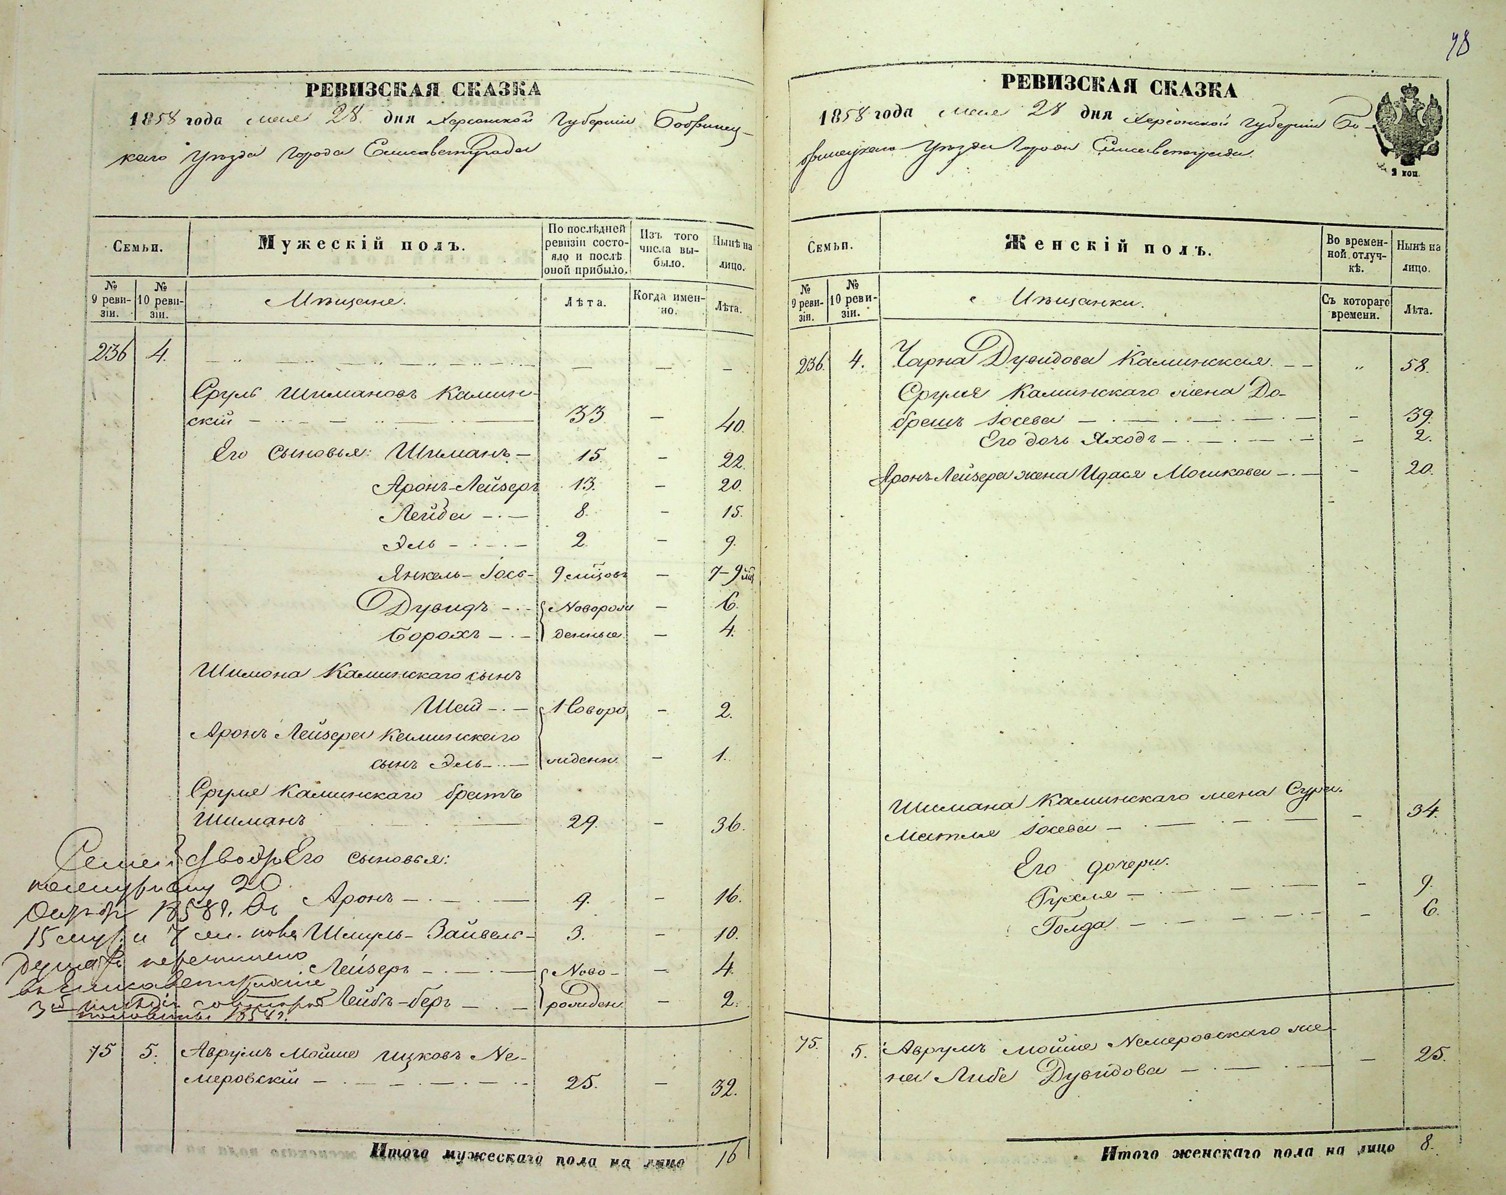 РЕВИЗСКАЯ СКАЗКА
1858 года мая 28 дня Херсонской Губернии Бобринец-
каго уѣзда города Елисаветграда
Семьи.
Мужескій полъ.
По послѣдней
ревизіи состо-
яло и послѣ
оной прибыло.
Изъ того
числа вы-
было.
Нынѣ на
лицо.
№
9 реви-
зіи.
№
10 реви-
зіи.
Мѣщане.
Лѣта.
Когда имен-
но.
Лѣта.
236 4. — — — —
Сруль Шимановъ Камин-
скій — 33 — 40.
Его сыновья: Шиманъ — 15. — 22.
Аронъ-Лейзеръ 13. — 20.
Лейба — 8. — 15.
Эль — 2. — 9.
Янкель-Іось — 9 мѣсцовъ — 7-9 м
Дувидъ — Новорож — 6.
Борохъ — денные — 4.
Шимона Каминскаго сынъ
Шая — Новоро — 2.
Аронъ Лейзера Каминскаго
сынъ Эль — жденн — 1.
Сруля Каминскаго братъ
Шиманъ 29. — 36.
Его сыновья:
Аронъ — 9. — 16.
Шмуль-Зайвель — 3. — 10.
Лейзеръ — Ново- — 4.
Лейбъ-беръ — рожден — 2.
Семей
20
1858 г.
15 и 7
3й
половины 1858 г.
75 5. Аврумъ Мойше Ицковъ Не-
меровскій — 25. — 32.
Итого мужескаго пола на лицо 16
78
РЕВИЗСКАЯ СКАЗКА
1858 года мая 28 дня Херсонской Губерніи Бо-
бринецкаго уѣзда города Елисаветграда.
2 коп
Семьи.
Женскій полъ.
Во времен-
ной отлуч-
кѣ.
Нынѣ на
лицо.
№
9 реви-
зіи.
№
10 реви-
зіи.
Мѣщанки.
Съ котораго
времени.
Лѣта.
236. 4. Чарна Дувидова Каминская — „ 58.
Сруля Каминскаго жена До-
брешъ Іосева — — 39.
Его дочь Яходъ — — 2.
Аронъ Лейзера жена Идася Мошкова — — 20.
Шимана Каминскаго жена Сура-
Матля Іосева — — 34.
Его дочери.
Рухля — — 9.
Голда — — 6.
75. 5. Аврумъ Мойше Немеровскаго же-
на Либе Дувидова — — 25.
Итого женскаго пола на лицо 8.